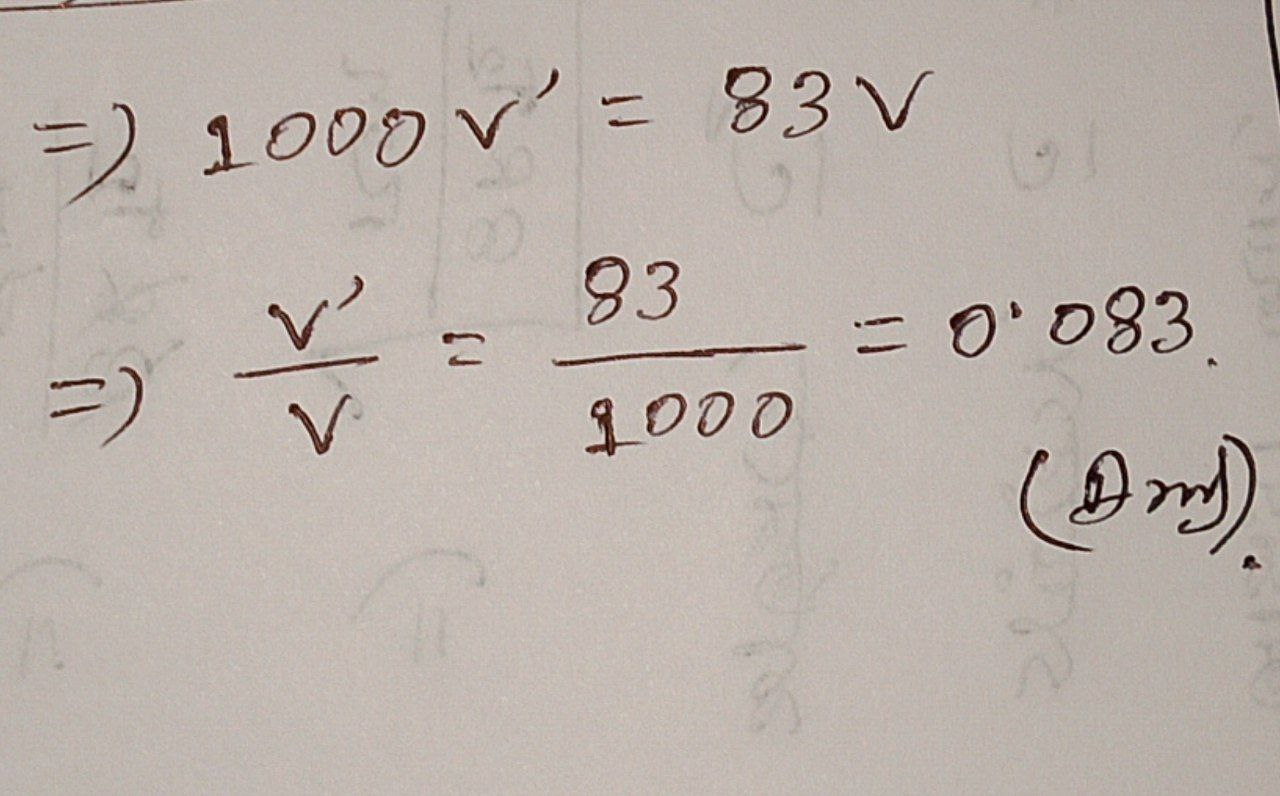 => 1000 v' = 83 v
=> v'/v = 83/1000 = 0·083.
(Ans).